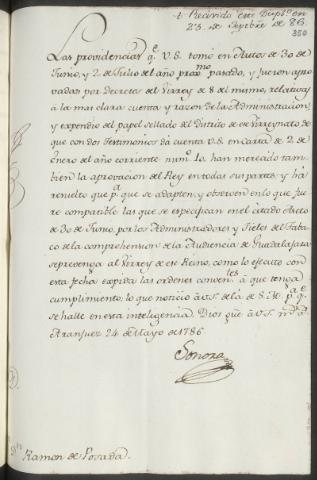 t. Recivido este Duplo. en
23. de Septbre de 86.
350
Las providencias qe. V.S. tomó en Autos de 30 de
Junio, y 2 de Julio del año proxmo. pasado, y fueron apro
vadas por decretos del Virrey de 8 del mismo, relativas
á la mas clara cuenta y razon de la Administracion,
y expendio del papel sellado del distrito de ese Virreynato de
que con dos testimonios da cuenta V.S. en Carta de 2 de
Enero del año corriente numo. 10. han merecido tam
bien la aprovacion del Rey en todas sus partes: y há
resuelto que pa. que se adapten, y observen en lo que fue
re compatible las que se especifican en el citado Auto
de 30 de Junio, por los Administradores y Fieles del Taba
co de la comprehension de la Audiencia de Guadalaxara
se prevenga al Virrey de ese Reino, como lo efectuo con
esta fecha, expida las ordenes convenies. á que tenga
cumplimiento: lo que noticio á V.S. de la de S.M. pa. qe.
se halle en esta inteligencia. Dios gue á V.S. ms. as.
Aranjuez 24 de Mayo de 1786.
Sonora
Ramon de Posada.